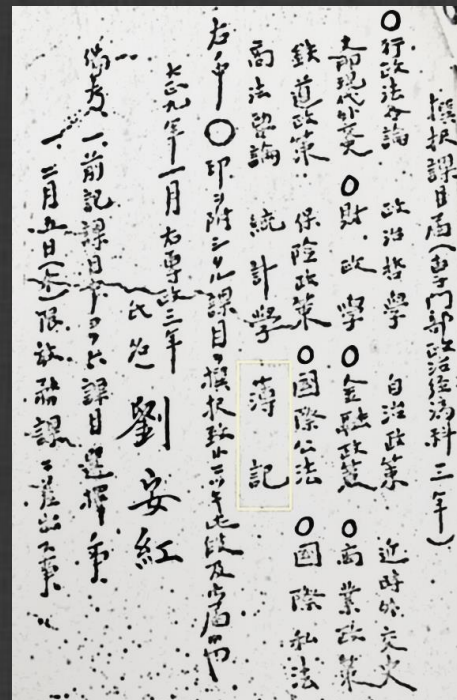 撰択課目届(専門部政治経済科三年)
○行政法各論 政治哲學 自治政策 近時外交史
支那現代外交史 ○財政學 ○金融政策 ○商業政策
鉄道政策 保険政策 ○國際公法 ○國際私法
商法 論 統計學 薄記
右ノ中○印ヲ附シタル課目ヲ撰択致 此段及御届
大正九年一月 専政三年
氏名 劉安紅
備考 一、前記課目中ヨリ六課目選擇ノ事
一、二月五日(木)限 課ニ差出ス事